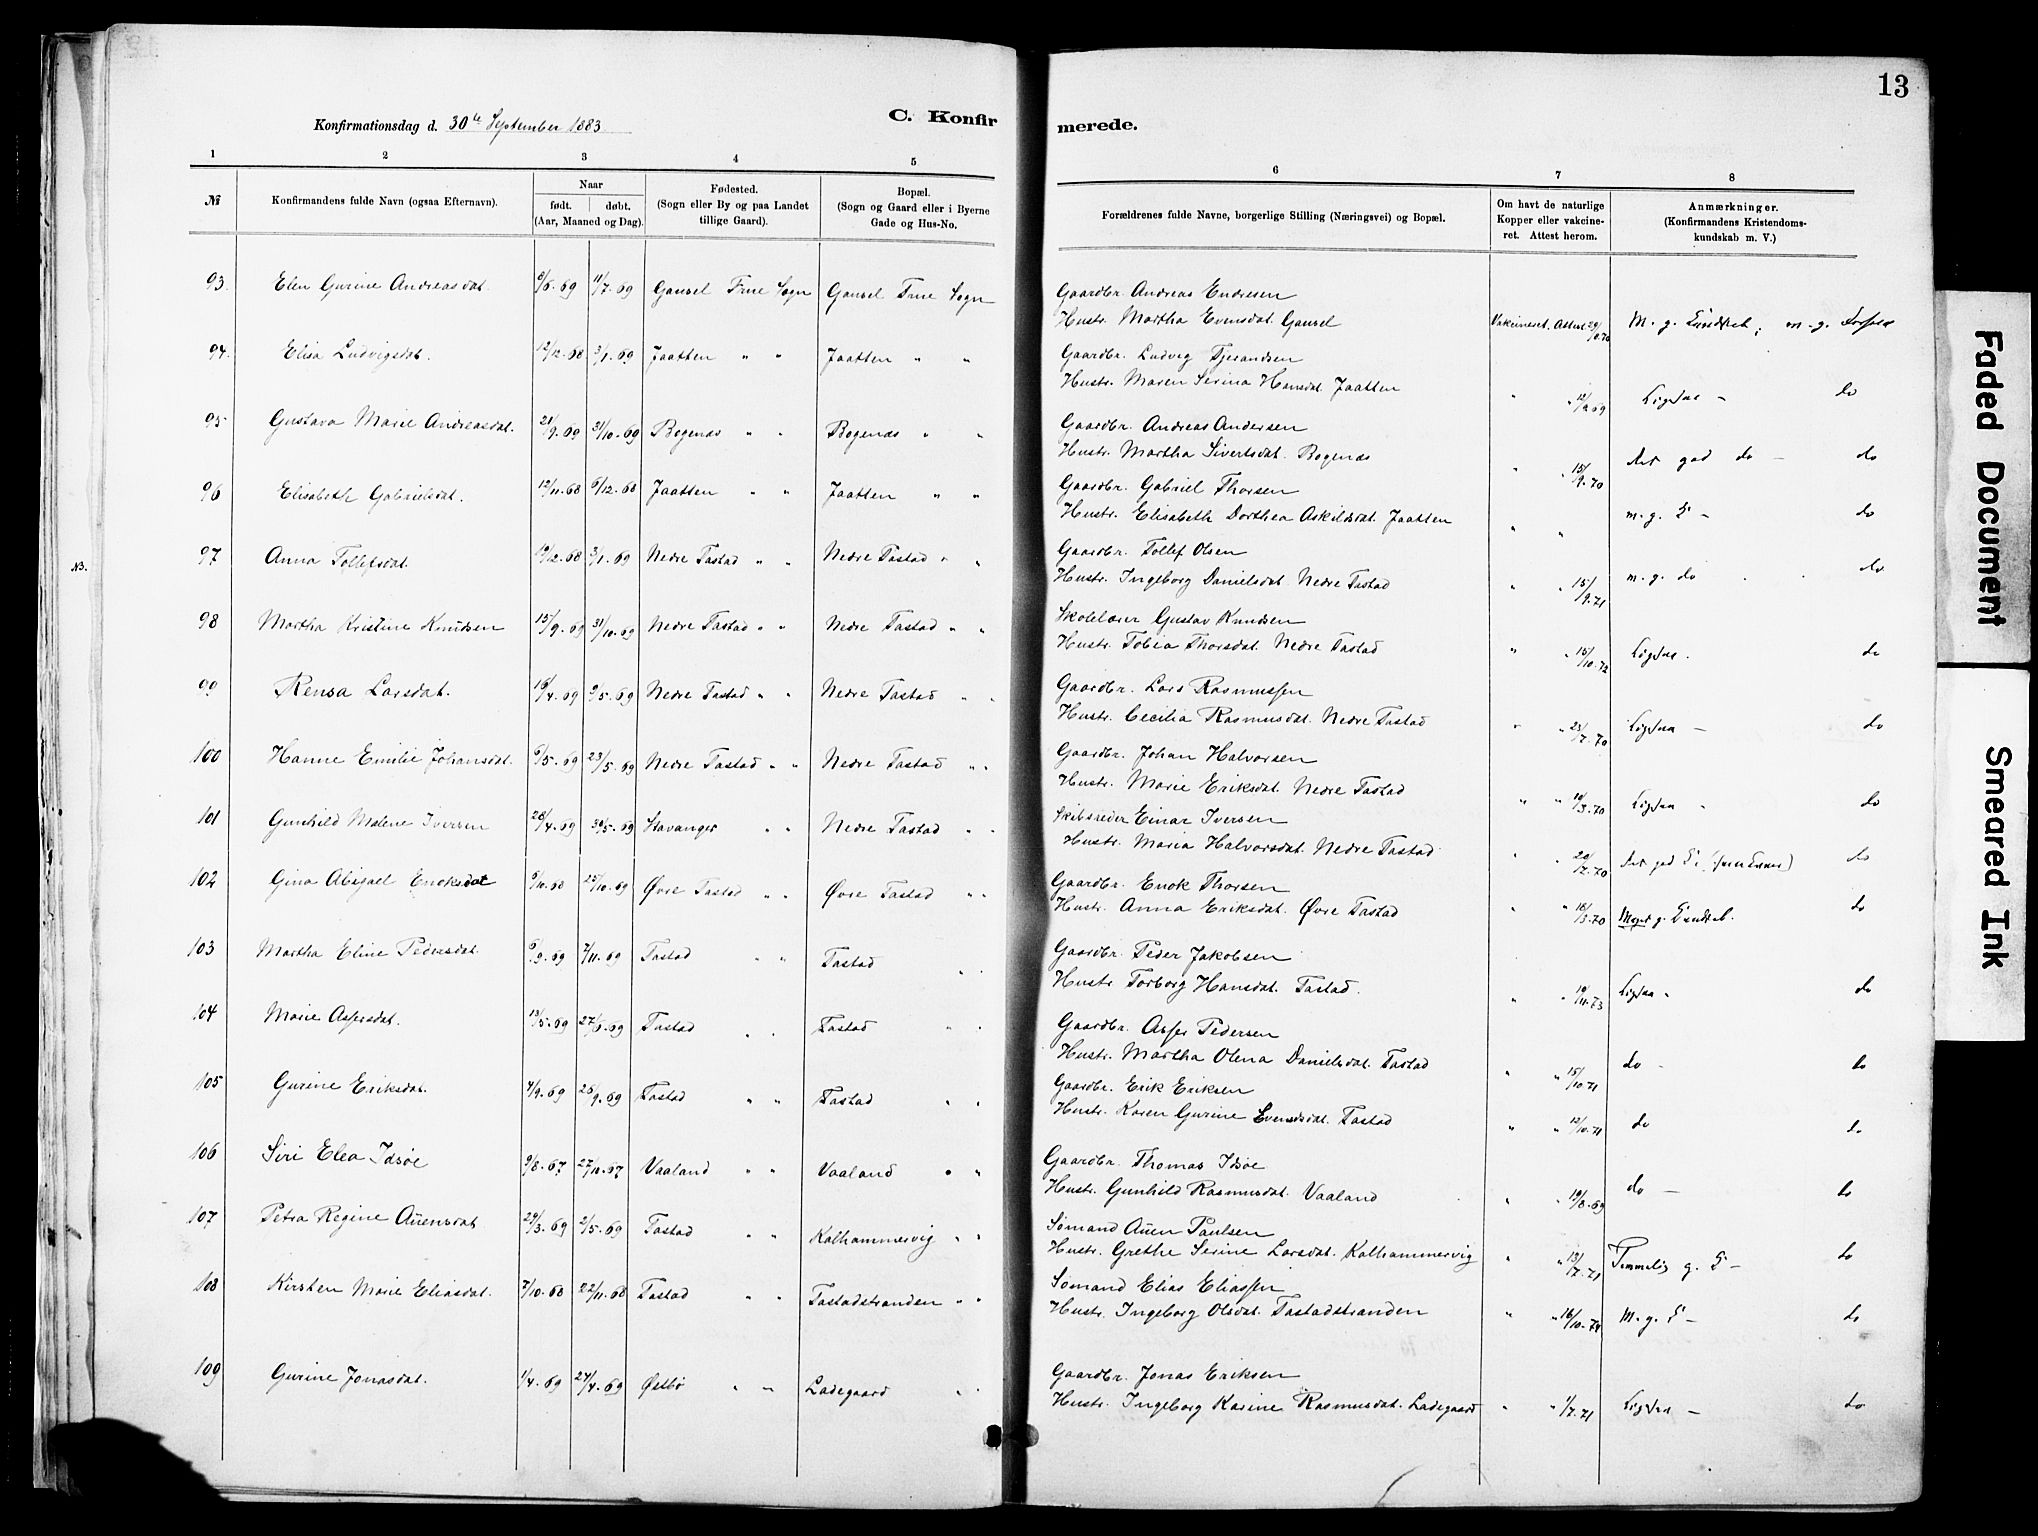 13
Konfirmationsdag d. 30te September 1883.
C. Konfirmerede.
1 2 3 4 5 6 7 8
№
Konfirmandens fulde Navn (ogsaa Efternavn).
Naar
født. døbt.
(Aar, Maaned og Dag).
Fødested.
(Sogn eller By og paa Landet
tillige Gaard).
Bopæl.
(Sogn og Gaard eller i Byerne
Gade og Hus-No.
Forældrenes fulde Navne, borgerlige Stilling (Næringsvei) og Bopæl.
Om havt de naturlige
Kopper eller vakcine-
ret. Attest herom.
Anmærkninger.
(Konfirmandens Kristendoms-
kundskab m. V.)
93. Elen Gurine Andreasdat. 6/6.69 11/7.69 Gausel Frue Sogn Gausel Frue Sogn Gaardbr. Andreas Endresen
Hustr. Martha Evensdat. Gausel Vakcineret. Attest M. g. Kundskab; m. g.
94. Elisa Ludvigsdat. 12/12.68 3/1.69 Jaatten " " Jaatten " " Gaardbr. Ludvig Tjerandsen
Hustr. Maren Serina Hansdat. Jaatten " " 12/9.69 Ligesaa – do
95 Gustava Marie Andreasdat. 21/9.69 31/10.69 Bogenæs " " Bogenæs " " Gaardbr. Andreas Andersen
Hustr. Martha Sivertsdat. Bogenæs " " 15/9.70 god do – do
96 Elisabeth Gabrielsdat. 12/11.68 6/12.68 Jaatten " " Jaatten " " Gaardbr. Gabriel Thorsen
Hustr. Elisabeth Dorthea Askildsdat. Jaatten " " m. g. K – do
N3.
97 Anna Tollefsdat. 10/12.68 3/1.69 Nedre Tastad " " Nedre Tastad " " Gaardbr. Tollef Olsen
Hustr. Ingeborg Danielsdat. Nedre Tastad " " 15/9.71 m. g. do do
98 Martha Kristine Knudsen 15/9.69 31/10.69 Nedre Tastad " " Nedre Tastad " " Skolelærer Gustav Knudsen
Hustr. Tobia Thorsdat. Nedre Tastad " " 15/10.72 Ligesaa. do
99 Rensa Larsdat. 16/4.69 9/5.69 Nedre Tastad " " Nedre Tastad " " Gaardbr. Lars Rasmussen
Hustr. Cecilia Rasmusdat. Nedre Tastad " " 23/7.70 Ligesaa – do
100 Hanne Emilie Johansdat. 6/5.69 23/5.69 Nedre Tastad " " Nedre Tastad " " Gaardbr. Johan Halvorsen
Hustr. Marie Eriksdat. Nedre Tastad " " 10/3.70 Ligesaa do
101 Gunhild Malene Iversen 28/4.69 30/5.69 Stavanger " " Nedre Tastad " " Skibsreder Einar Iversen
Hustr. Maria Halvorsdat. Nedre Tastad " " 20/7.70 god K. do
102 Gina Abigael Enoksdat 6/10.68 25/10.69 Øvre Tastad " " Øvre Tastad " " Gaardbr. Enok Thorsen
Hustr. Anna Eriksdat. Øvre Tastad " " 16/3.70 Meget g. Kundskab. do
103 Martha Eline Pedersdat. 6/9.69 7/11.69 Tastad " " Tastad " " Gaardbr. Peder Jakobsen
Hustr. Torborg Hansdat. Tastad. " " 10/11.73 Ligesaa do
104 Marie Assersdat. 13/5.69 27/6.69 Tastad " " Tastad " " Gaardbr. Asser Pedersen
Hustr. Martha Olena Danielsdat. Tastad " " 15/10.71 do – do
105 Gurine Eriksdat. 4/9.69 26/9.69 Tastad " " Tastad " " Gaardbr. Erik Eriksen
Hustr. Karen Gurine Svendsdat. Tastad " " 12/10.71 do do
106 Siri Elea Idsøe 9/8.67 27/10.67 Vaaland " " Vaaland " " Gaardbr. Thomas Idsøe
Hustr. Gunhild Rasmusdat. Vaaland " " 19/8.69 do – do
107 Petra Regine Auensdat 29/3.69 2/5.69 Tastad " " Kalhammervig " " Sømand Auen Paulsen
Hustr. Grethe Serine Larsdat. Kalhammervig " " 13/7.71 Temmelig g. K – do
108 Kirsten Marie Eliasdat. 7/10.68 22/11.68 Tastad " " Tastadstranden " " Sømand Elias Eliassen
Hustr. Ingeborg Olsdat. Tastadstranden " " 16/10.74 M. g. K – do
109 Gurine Jonasdat. 1/4.69 24/4.69 Østbø " " Ladegaard " " Gaardbr. Jonas Eriksen
Hustr. Ingeborg Karine Rasmusdat. Ladegaard " " 1/7.71 Ligesaa – do
Faded Document
Smeared Ink